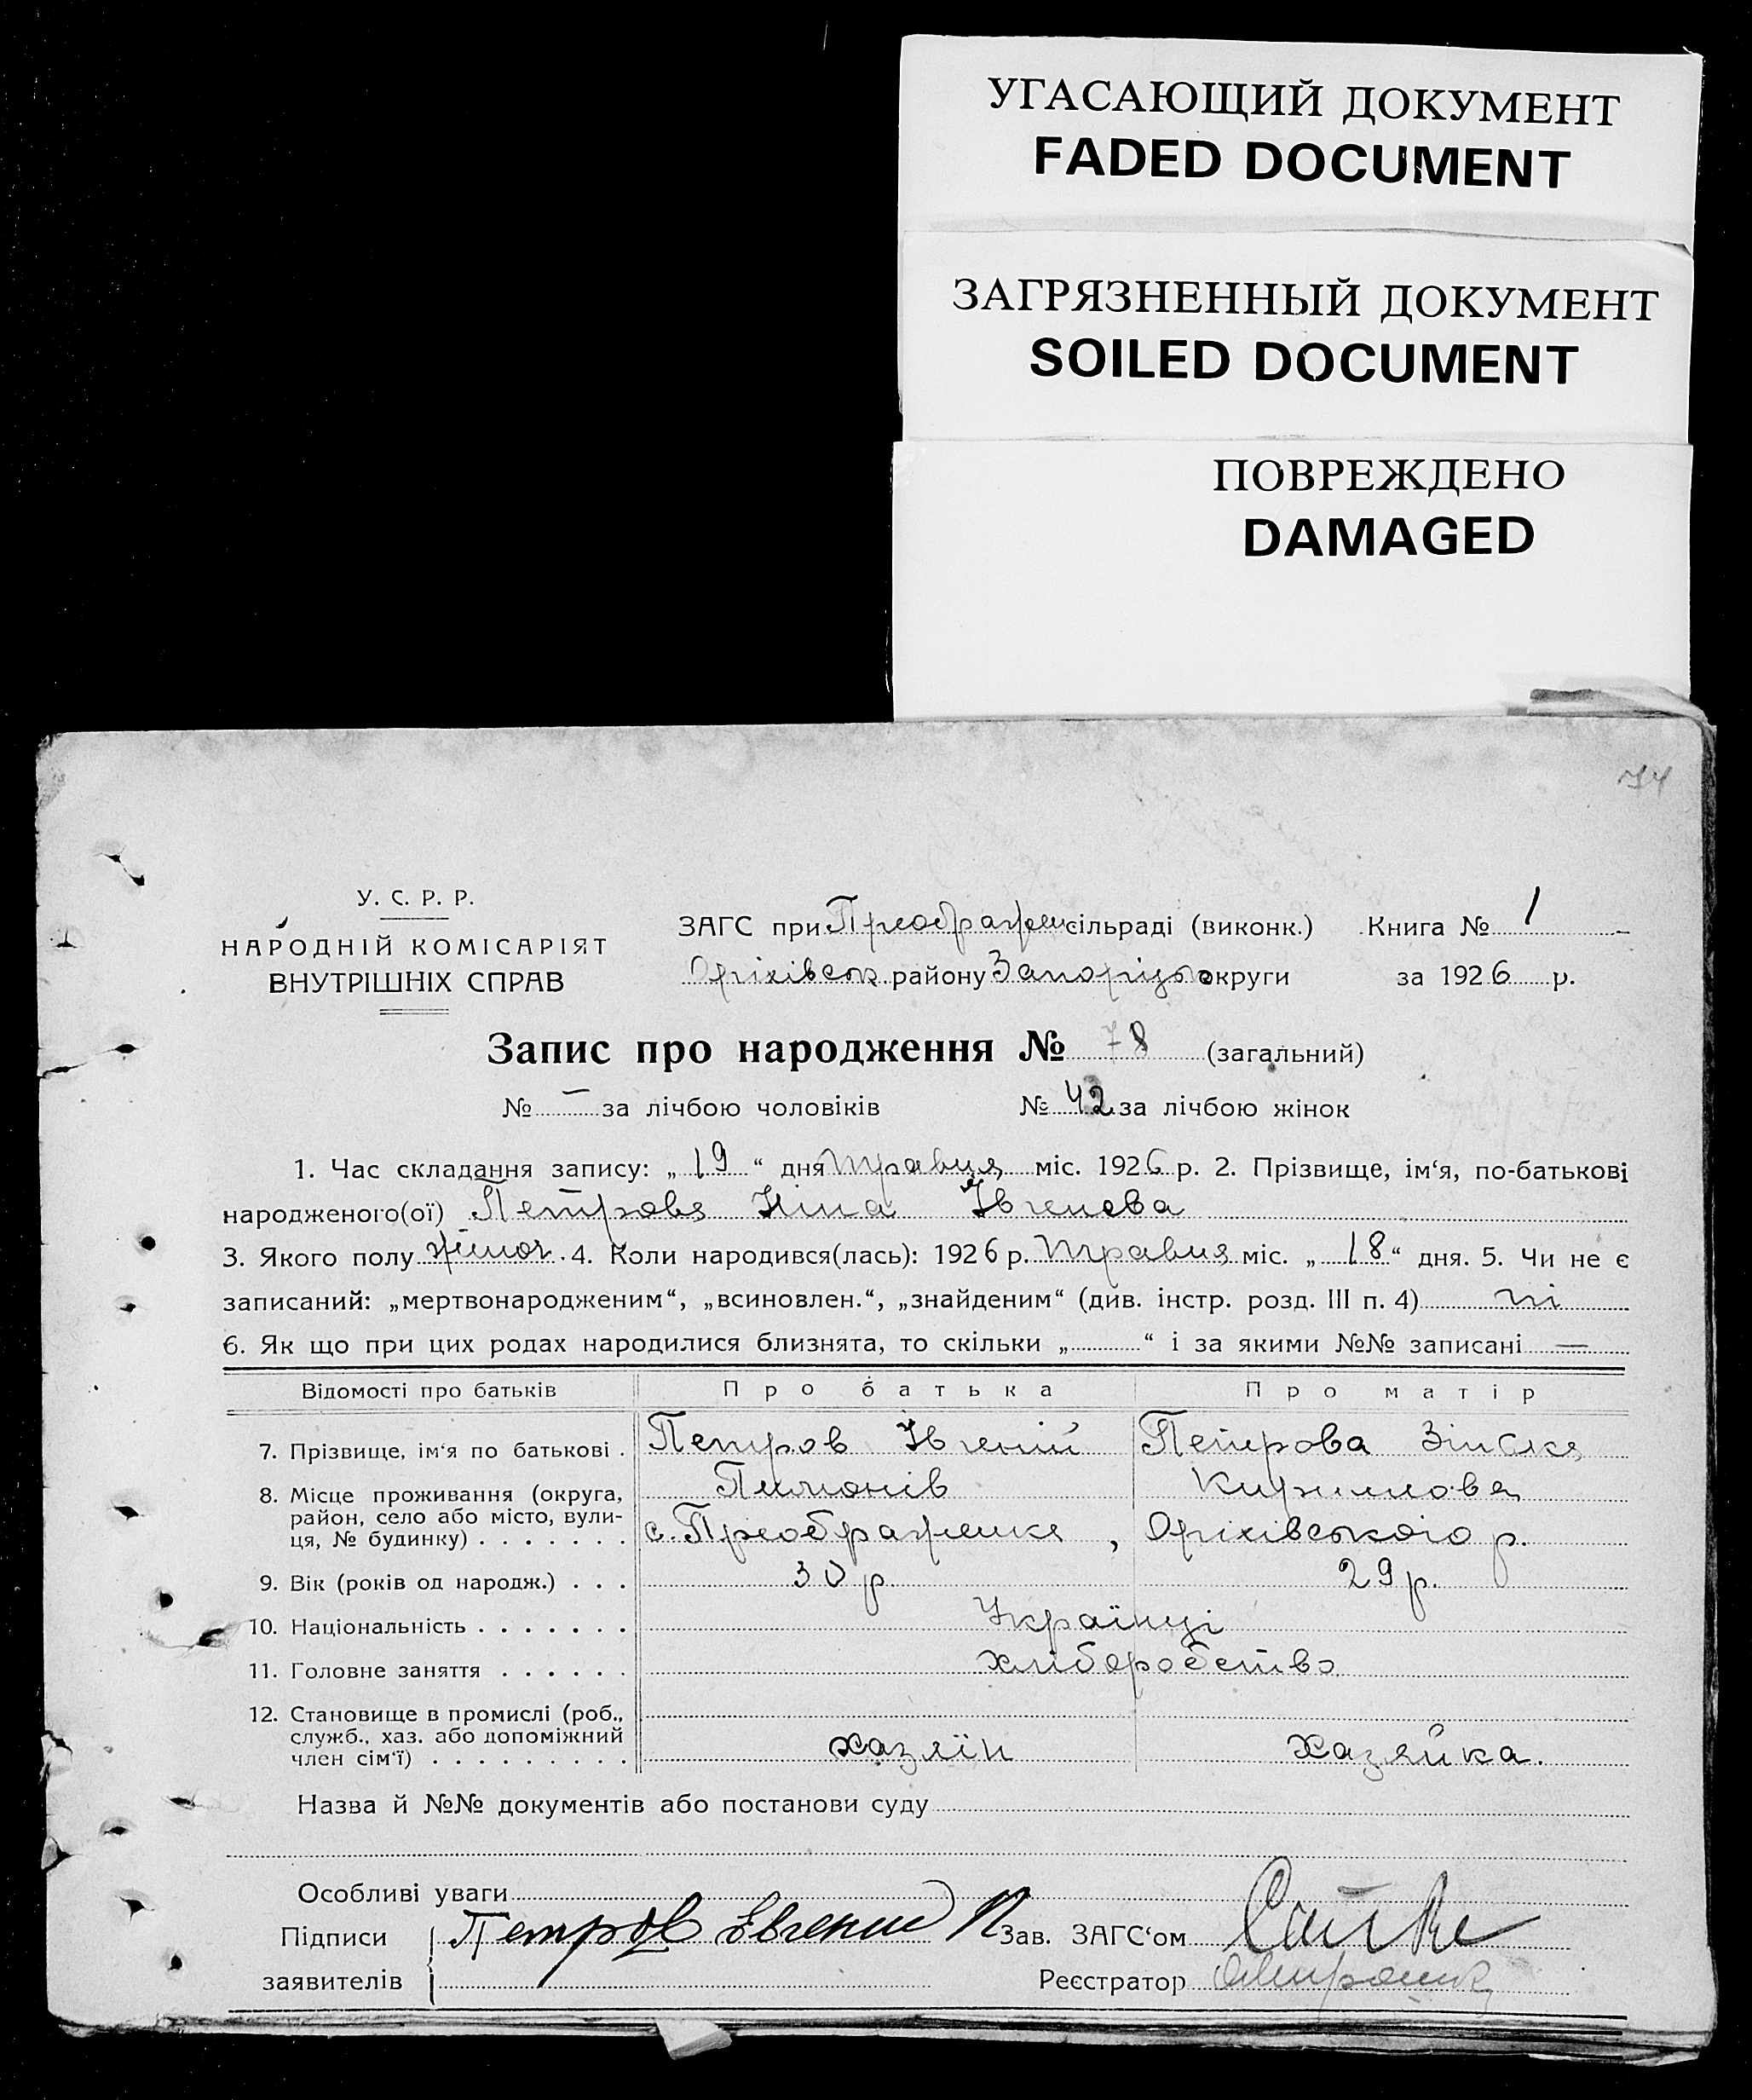 УГАСАЮЩИЙ ДОКУМЕНТ
FADED DOCUMENT
ЗАГРЯЗНЕННЫЙ ДОКУМЕНТ
SOILED DOCUMENT
ПОВРЕЖДЕНО
DAMAGED
74
У. С. Р. Р.
НАРОДНІЙ КОМІСАРІЯТ
ВНУТРІШНІХ СПРАВ
ЗАГС при Преображен сільраді (виконк.) Книга № 1
Оріхівськ району Запорізьк округи за 1926 р.
Запис про народження № 78 (загальний)
№ — за лічбою чоловіків № 42 за лічбою жінок
1. Час складання запису: „ 19 “ дня травня міс. 1926 р. 2. Прізвище, ім‘я, по-батькові
народженого(ої) Петрова Ніна Івгенова
3. Якого полу жіноч. 4. Коли народився(лась): 1926 р. травня міс. „ 18 “ дня. 5. Чи не є
записаний: „мертвонародженим“, „всиновлен.“, „знайденим“ (див. інстр. розд. III п. 4) ні
6. Як що при цих родах народилися близнята, то скільки „ “ і за якими №№ записані —
Відомості про батьків Про батька Про матір
7. Прізвище, ім‘я по батькові . Петров Івгеній Петрова Зінька
Пилионів Кирилова
8. Місце проживання (округа,
район, село або місто, вули-
ця, № будинку) . . . . . . . с. Преображенка , Оріхівського р.
9. Вік (років од народж.) . . . 30 р 29 р.
10. Національність . . . . . . . Українці
11. Головне заняття . . . . . . хліборобство
12. Становище в промислі (роб.,
служб., хаз. або допоміжний
член сім‘ї) . . . . . . . . . хазяїн хазяйка.
Назва й №№ документів або постанови суду
Особливі уваги
Підписи Петров Евгений П Зав. ЗАГС‘ом
заявителів Реєстратор